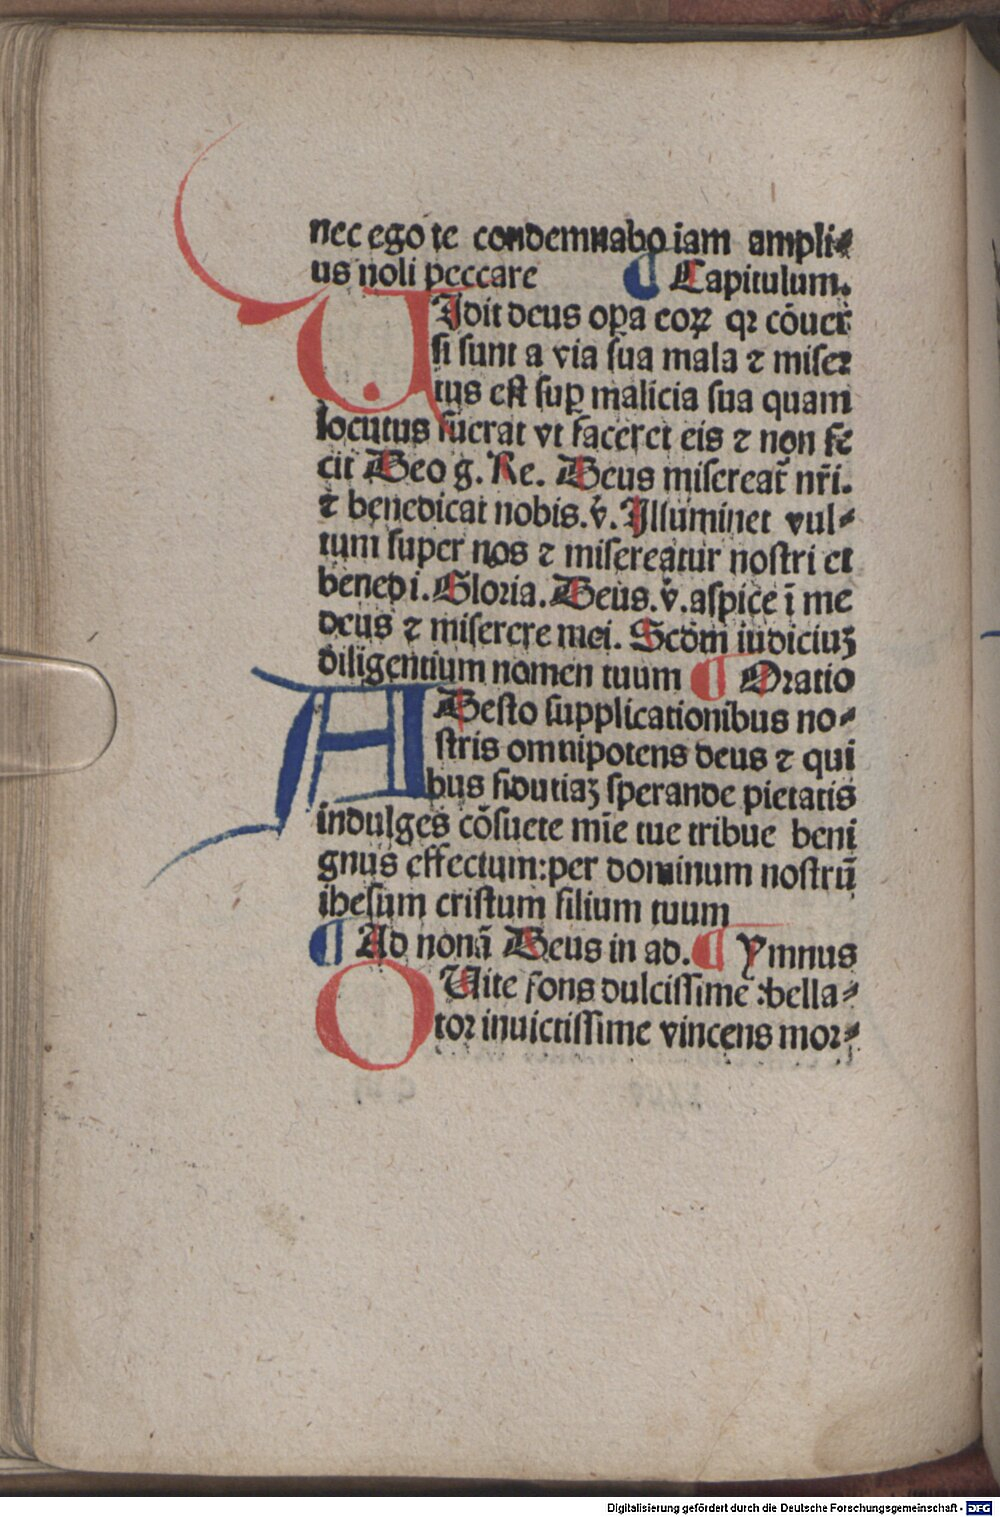 nec ego te condemnabo iam ampli⸗
us noli peccare ¶ Capitulum.
VIdit deus oꝑa eoꝝ qꝛ cōuer
si sunt a via sua mala ⁊ miser
tus est suꝑ malicia sua quam
locutus fuerat vt faceret eis ⁊ non fe
cit Deo g. Re. Deus misereat̄ nr̄i.
⁊ benedicat nobis. v̄. Illuminet vul⸗
tum super nos ⁊ misereatur nostri et
benedi. Gloria. Deus. v̄. aspice ī me
deus ⁊ miserere mei. Scdm̄ iudiciuꝫ
diligentium nomen tuum ¶ Oratio
ADesto supplicationibus no⸗
stris omnipotens deus ⁊ qui
bus fidutiaꝫ sperande pietatis
indulges cōsuete mīe tue tribue beni
gnus effectum: per dominum nostrū
ihesum cristum filium tuum
¶ Ad nonā Deus in ad. ¶ Ymnus
O Vite fons dulcissime : bella⸗
tor inuictissime vincens mor⸗
Digitalisierung gefördert durch die Deutsche Forschungsgemeinschaft - DFG